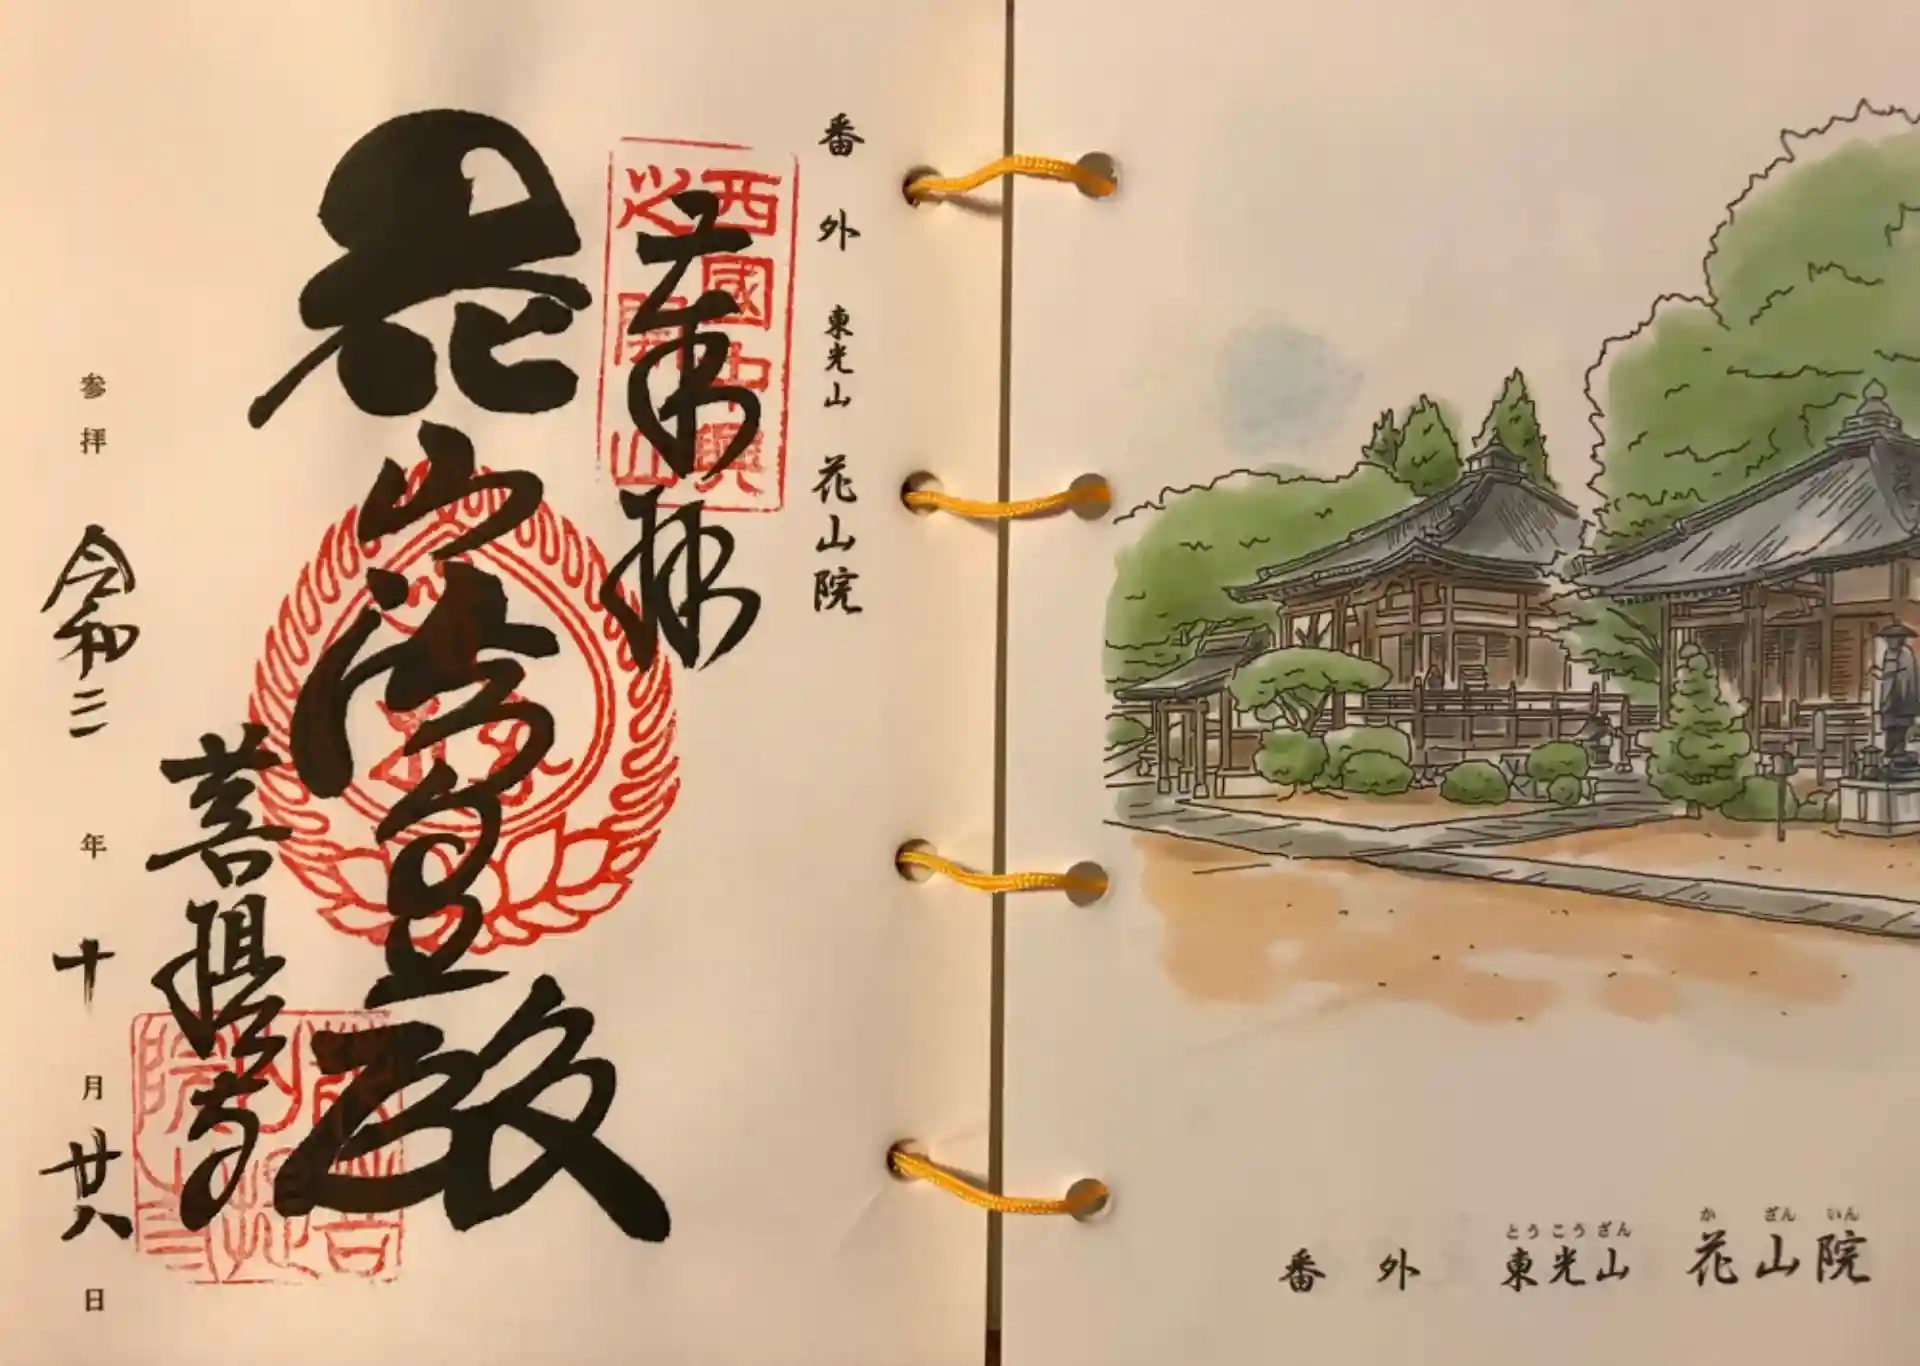 番外 東光山 花山院
奉拝
西國中興
之開山
花山法皇殿
菩提寺
参拝 令和二年十月廿八日
とうこうざん かざんいん
番外 東光山 花山院